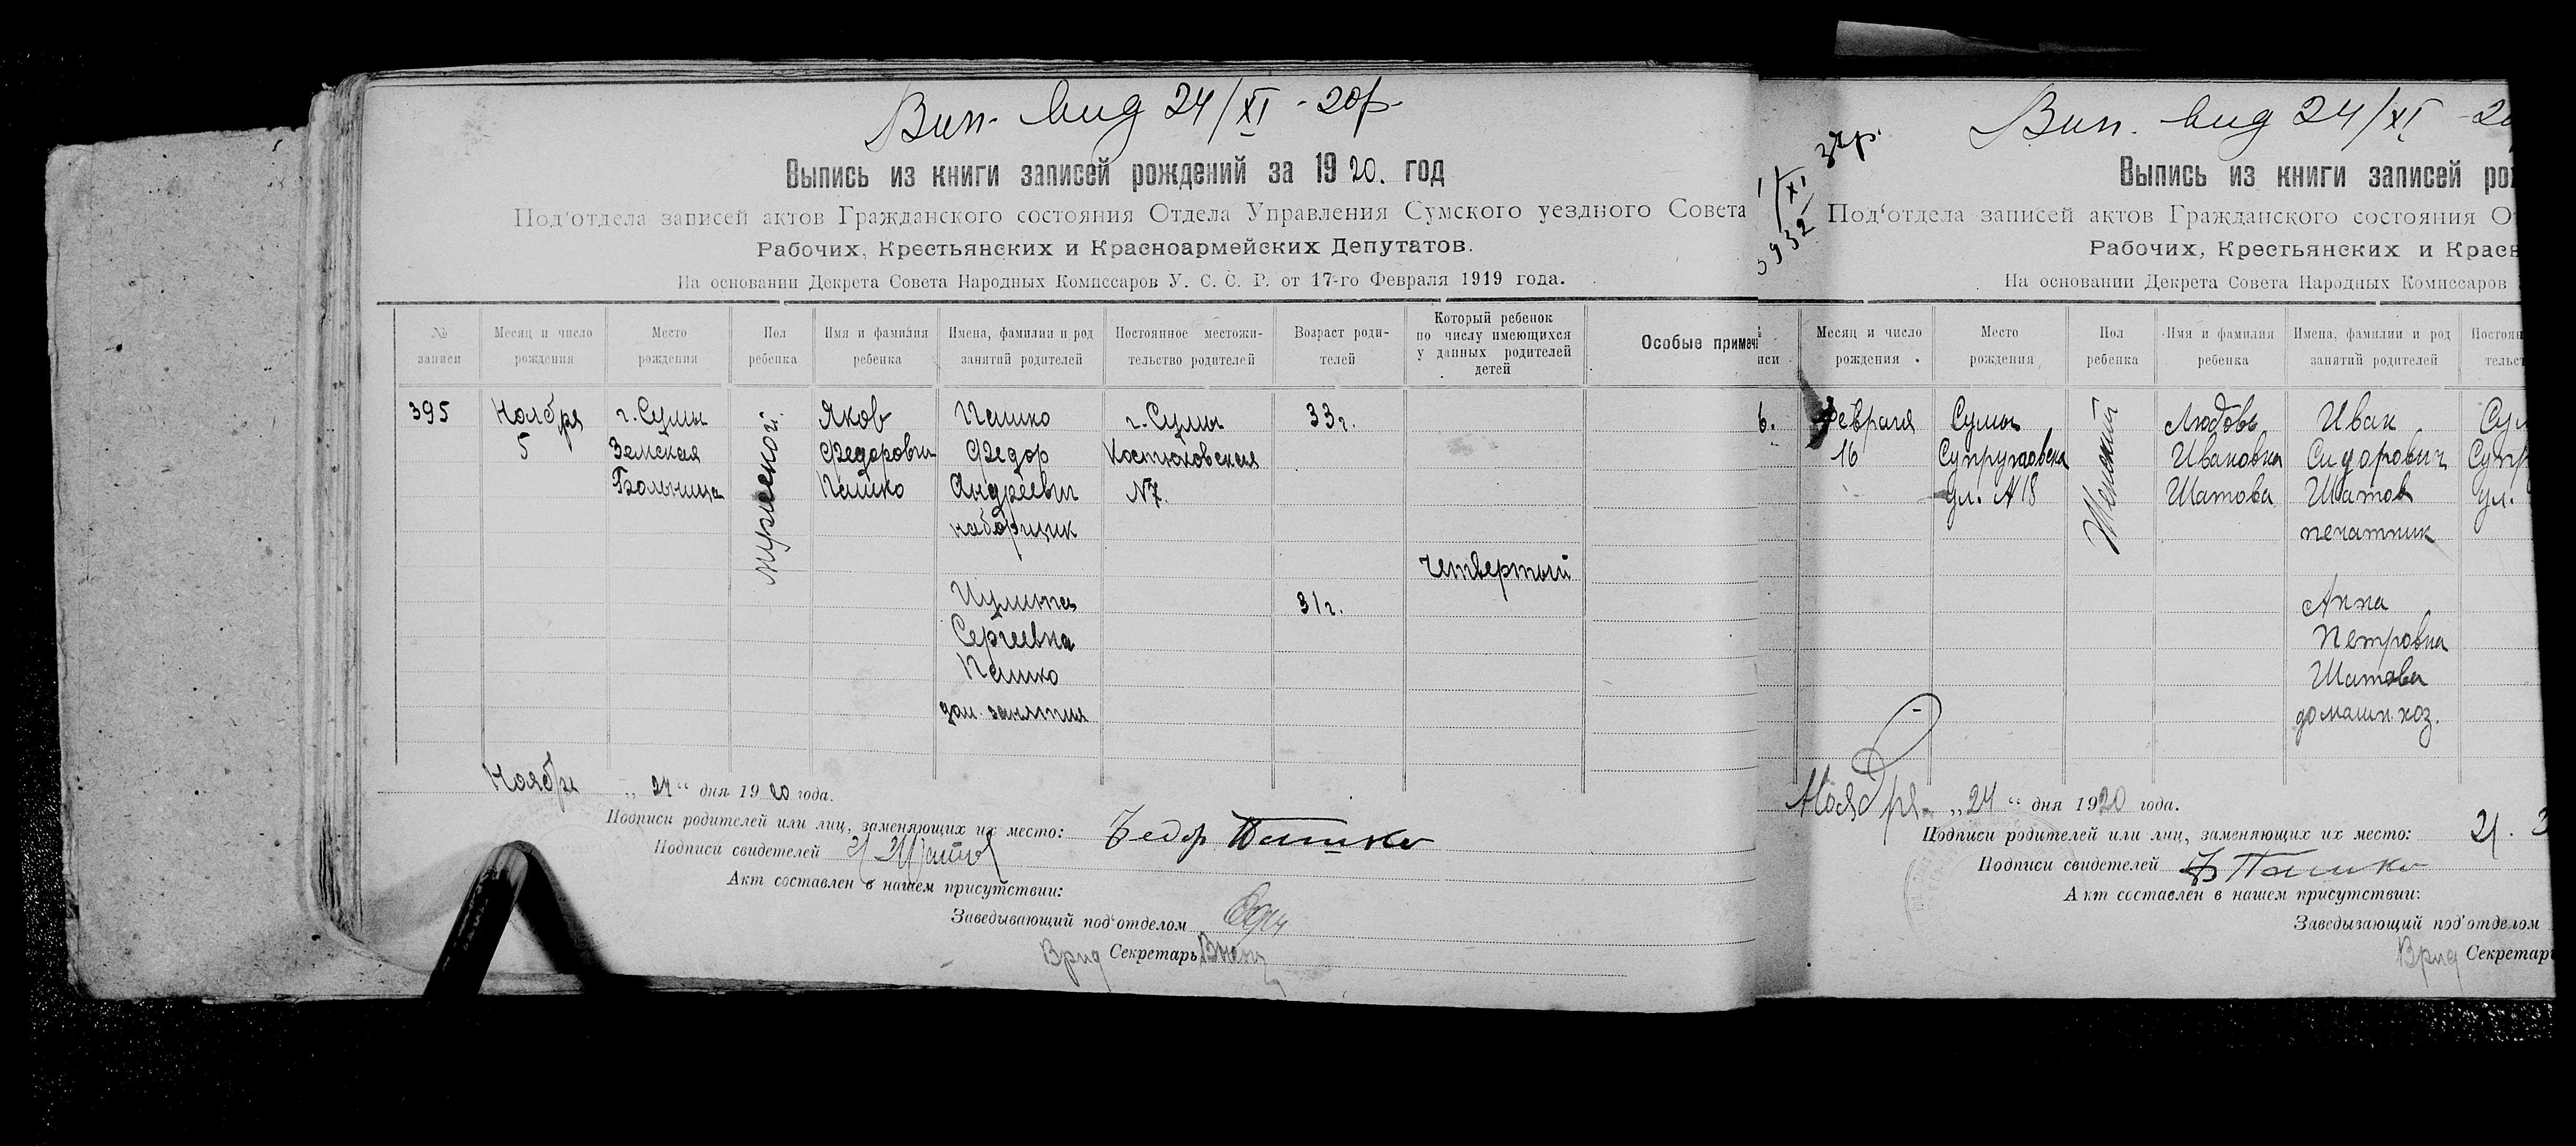 Вип. вид 24/XI - 20р.
Выпись из книги записей рождений за 1920. год
Под‘отдела записей актов Гражданского состояния Отдела Управления Сумского уездного Совета
Рабочих, Крестьянских и Красноармейских Депутатов.
На основании Декрета Совета Народных Комиссаров У. С. С. Р. от 17-го Февраля 1919 года.
№ записи
Месяц и число рождения
Место рождения
Пол ребенка
Имя и фамилия ребенка
Имена, фамилии и род занятий родителей
Постоянное местожительство родителей
Возраст родителей
Который ребенок по числу имеющихся у данных родителей детей
Особые примеч
395 Ноября г. Сумы Яков Пашко г. Сумы 33 г.
5 Земская Федорович Федор Костюковская
Больница Пашко Андреевич №7.
мужской
наборщик
четвертый
31 г.
Сергеевна
Пашко
дом. занятия
Ноября „24“ дня 1920 года.
Подписи родителей или лиц, заменяющих их место: Федор Пашко
Подписи свидетелей И Шатов
Акт составлен в нашем присутствии:
Заведывающий под‘отделом
Врид Секретарь
Вип. вид 24/XI - 2
1/XI 32р.
Выпись из книги записей ро
Под‘отдела записей актов Гражданского состояния О
Рабочих, Крестьянских и Красн
На основании Декрета Совета Народных Комиссаров
иси
Месяц и число рождения
Место рождения
Пол ребенка
Имя и фамилия ребенка
Имена, фамилии и род занятий родителей
Постоян тельст
6. Февраля Сумы Любовь Иван Сум
16 Ивановна Сидорович Супр
ул. №18 Шатова Шатов ул.
Женский
печатник
Анна
Петровна
Шатова
домашн. хоз.
Ноября „24“ дня 1920 года.
Подписи родителей или лиц, заменяющих их место:
Подписи свидетелей Ф Пашко
Акт составлен в нашем присутствии:
Заведывающий под‘отделом
Врид Секретарь